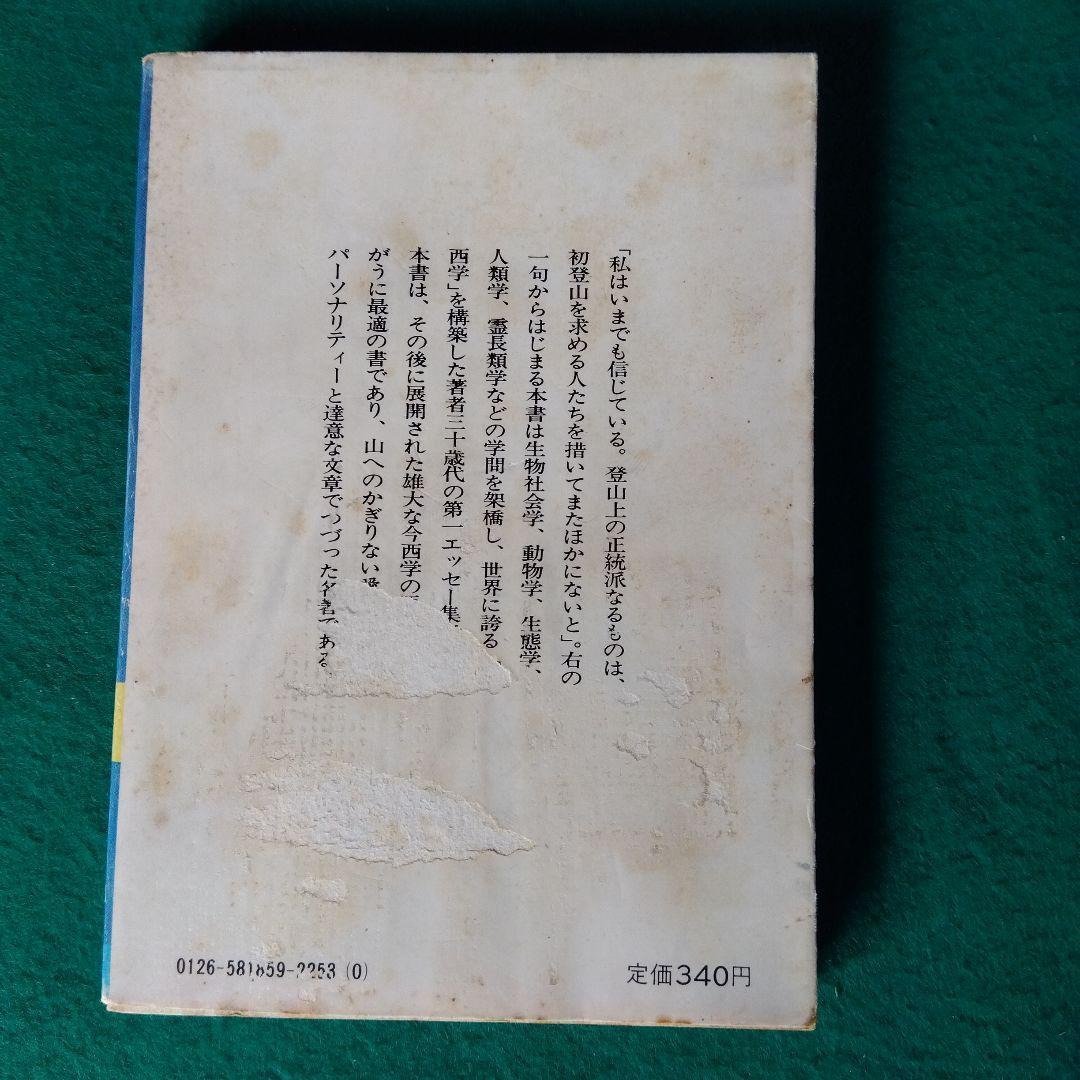 「私はいまでも信じている。登山上の正統派なるものは、
初登山を求める人たちを措いてまたほかにないと」。右の
一句からはじまる本書は生物社会学、動物学、生態学、
人類学、霊長類学などの学問を架橋し、世界に誇る
西学」を構築した著者三十歳代の第一エッセー集
本書は、その後に展開された雄大な今西学の
がうに最適の書であり、山へのかぎりない
パーソナリティーと達意な文章でつづった名著である
0126-581859-2253 (0)
定価340円